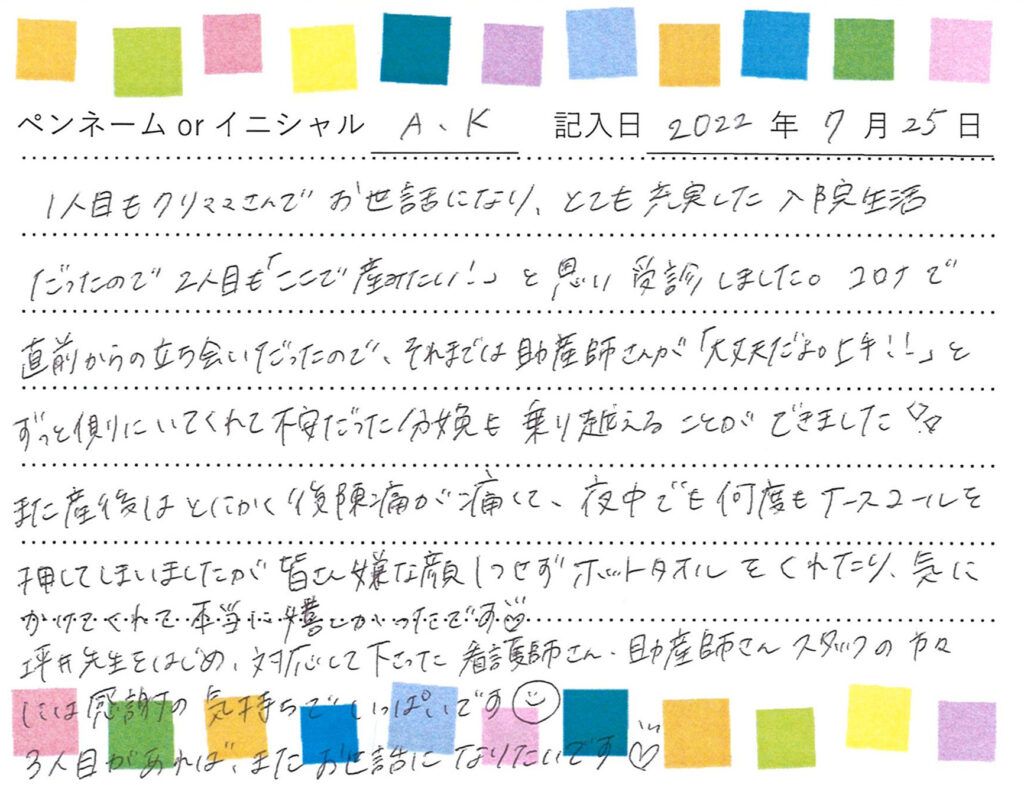 ペンネーム or イニシャル A、K 記入日 2022 年 7 月 25 日
1人目もクリママさんで お世話になり、とても 充実した 入院生活
だったので 2人目も「ここで 産みたい!」と 思い 受診しました。コロナで
直前からの立ち会いだったので、それまでは 助産師さんが「大丈夫だよ。上手!!」と
ずっと側りにいてくれて 不安だった分娩も 乗り越える ことが できました♡♡
また産後は とにかく 後陣痛が 痛くて、夜中でも 何度も ナースコールを
押してしまいましたが 皆さん 嫌な顔 1つせず ホットタオル を くれたり、気に
かけてくれて 本当に 嬉しかったです♡
坪井先生をはじめ、対応して下さった 看護師さん・助産師さん スタッフの 方々
には 感謝の 気持ちで いっぱいです☺
3人目があれば、また お世話に なりたいです♡